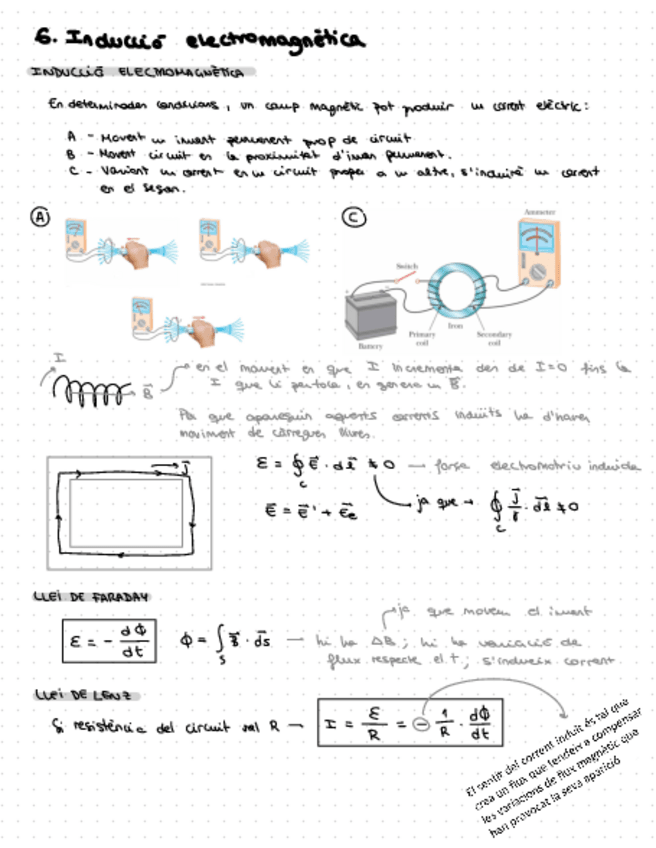 6. Inducció electromagnètica
INDUCCIÓ ELECTROMAGNÈTICA
En determinades condicions, un camp magnètic pot produir un corrent elèctric:
A - Movent un imant permanent prop de circuit
B - Movent circuit en la proximitat d'iman permanent.
C - Variant un corrent en un circuit proper a un altre, s'induirà un corrent
en el segon.
A
C
Ammeter
Switch
+
Battery
Primary
coil
Iron
Secondary
coil
I
B⃗
en el moment en que I incrementa des de I=0 fins la
I que li pertoca, es genera un B⃗.
Per que apareguin aquests corrents induïts ha d'haver
moviment de càrregues lliures.
J⃗
ε = ∮c E⃗ · dl⃗ ≠ 0 → força electromotriu induïda
E⃗ = E⃗' + E⃗e
ja que → ∮c J⃗/γ · dl⃗ ≠ 0
LLEI DE FARADAY
ja que movem el imant
ε = - dΦ/dt
Φ = ∫s B⃗ · ds⃗ — hi ha ΔB; hi ha variació de
flux respecte el t; s'indueix corrent
LLEI DE LENZ
Si resistència del circuit val R → I = ε/R = - 1/R · dΦ/dt
El sentit del corrent induït és tal que
crea un flux que tendeix a compensar
les variacions de flux magnètic que
han provocat la seva aparició